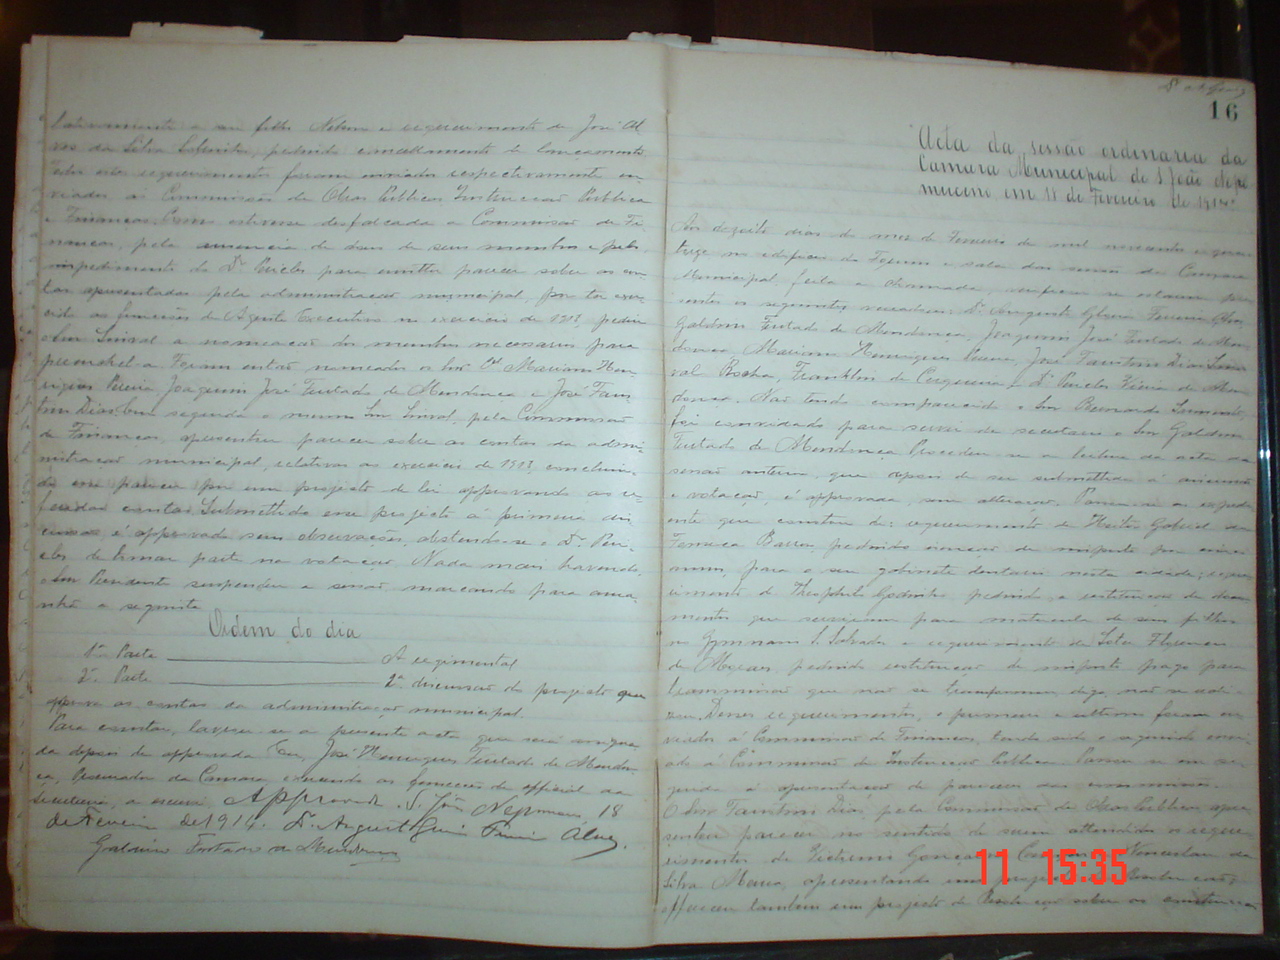 a seu filho Nelson e requerimento de José Al
ves da Silva Sobrinho, pedindo cancellamento de lançamento.
Todos estes requerimentos foram enviados respectivamente en
viados ás Commissões de Obras Publicas, Instrucção Publica
e Finanças. Como estivesse desfalcada a Commissão de Fi
nanças, pela ausencia de dous de seus membros e pelo
impedimento do Dr. Pericles para emittir parecer sobre as con
tas apresentadas pela administração municipal, por ter exer
cido as funcções de Agente Executivo no exercicio de 1913, pediu
o Snr. Sinval a nomeação dos membros necessarios para
preenchel-a. Foram então nomeados os Snr. Cel. Mariano Hen
riques Pereira, Joaquim José Furtado de Mendonça e José Faus
tino Dias. Em seguida o mesmo Snr. Sinval, pela Commissão
de Finanças, apresentou parecer sobre as contas da admi
nistração municipal, relativas ao exercicio de 1913, concluin
do esse parecer por um projecto de lei approvando as re
feridas contas. Submettido esse projecto á primeira dis
cussão, é approvado sem observações, abstendo-se o Dr. Peri
cles de tomar parte na votação. Nada mais havendo,
o Snr. Presidente suspendeu a sessão, marcando para ama
nhã a seguinte
Ordem do dia
1ª Parte A regimental
2ª Parte 2ª discussão do projecto que
approva as contas da administração municipal.
Para constar, lavrou-se a presente acta que será assigna
da depois de approvada. Eu, José Henriques Furtado de Mendon
ça, Procurador da Camara, exercendo as funcções de official da
Secretaria, a escrevi. Approvada. S. João Nepomuceno, 18
de Fevereiro de 1914. Dr. Augusto Gloria Ferreira Alves.
Galdino Furtado de Mendonça
16
Acta da sessão ordinaria da
Camara Municipal de S. João Nepo
muceno em 18 de Fevereiro de 1914.
Aos dezoito dias do mez de Fevereiro de mil novecentos e quatorze
no edificio do Forum e sala das sessões da Camara
Municipal, feita a chamada, verificou-se estarem pre
sentes os seguintes vereadores: Dr. Augusto Gloria Ferreira Alves,
Galdino Furtado de Mendonça, Joaquim José Furtado de Men
donça, Mariano Henriques Pereira, José Faustino Dias, Sin
val Rocha, Franklin de Cerqueira e Dr. Pericles Vieira de Men
donça. Não tendo comparecido o Snr. Bernardo
foi convidado para servir de secretario o Snr. Galdino
Furtado de Mendonça. Procedeu-se a leitura da acta da
sessão anterior, que depois de ser submettida á discussão
e votação, é approvada sem alteração. Passou-se ao expedi
ente que constou de: requerimento de Heitor Gabriel da
Fonseca Barros, pedindo isenção de imposto por cinco
annos, para o seu gabinete dentario nesta cidade; reque
rimento de Theophilo Godinho, pedindo a restituição de docu
mentos que serviram para matricula de seus filhos
no Gymnasio e requerimento de
de Moraes pedindo restituição de imposto pago para
transmissão que não se
Desses requerimentos, o primeiro e ultimo foram en
viados á Commissão de Finanças, tendo sido o segundo envi
ado á Commissão de Instrucção Publica. Passou-se em se
guida á apresentação de pareceres das commissões.
O Snr. Faustino Dias, pela Commissão de Obras Publicas, apre
sentou parecer no sentido de serem attendidos os reque
rimentos de e Venceslau da
Silva apresentando um projecto de Resolução;
offereceu tambem um projecto de Resolução sobre os
11 15:35